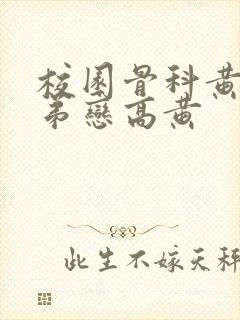 校园骨科黄
弟戀高黄
此生不嫁天秤